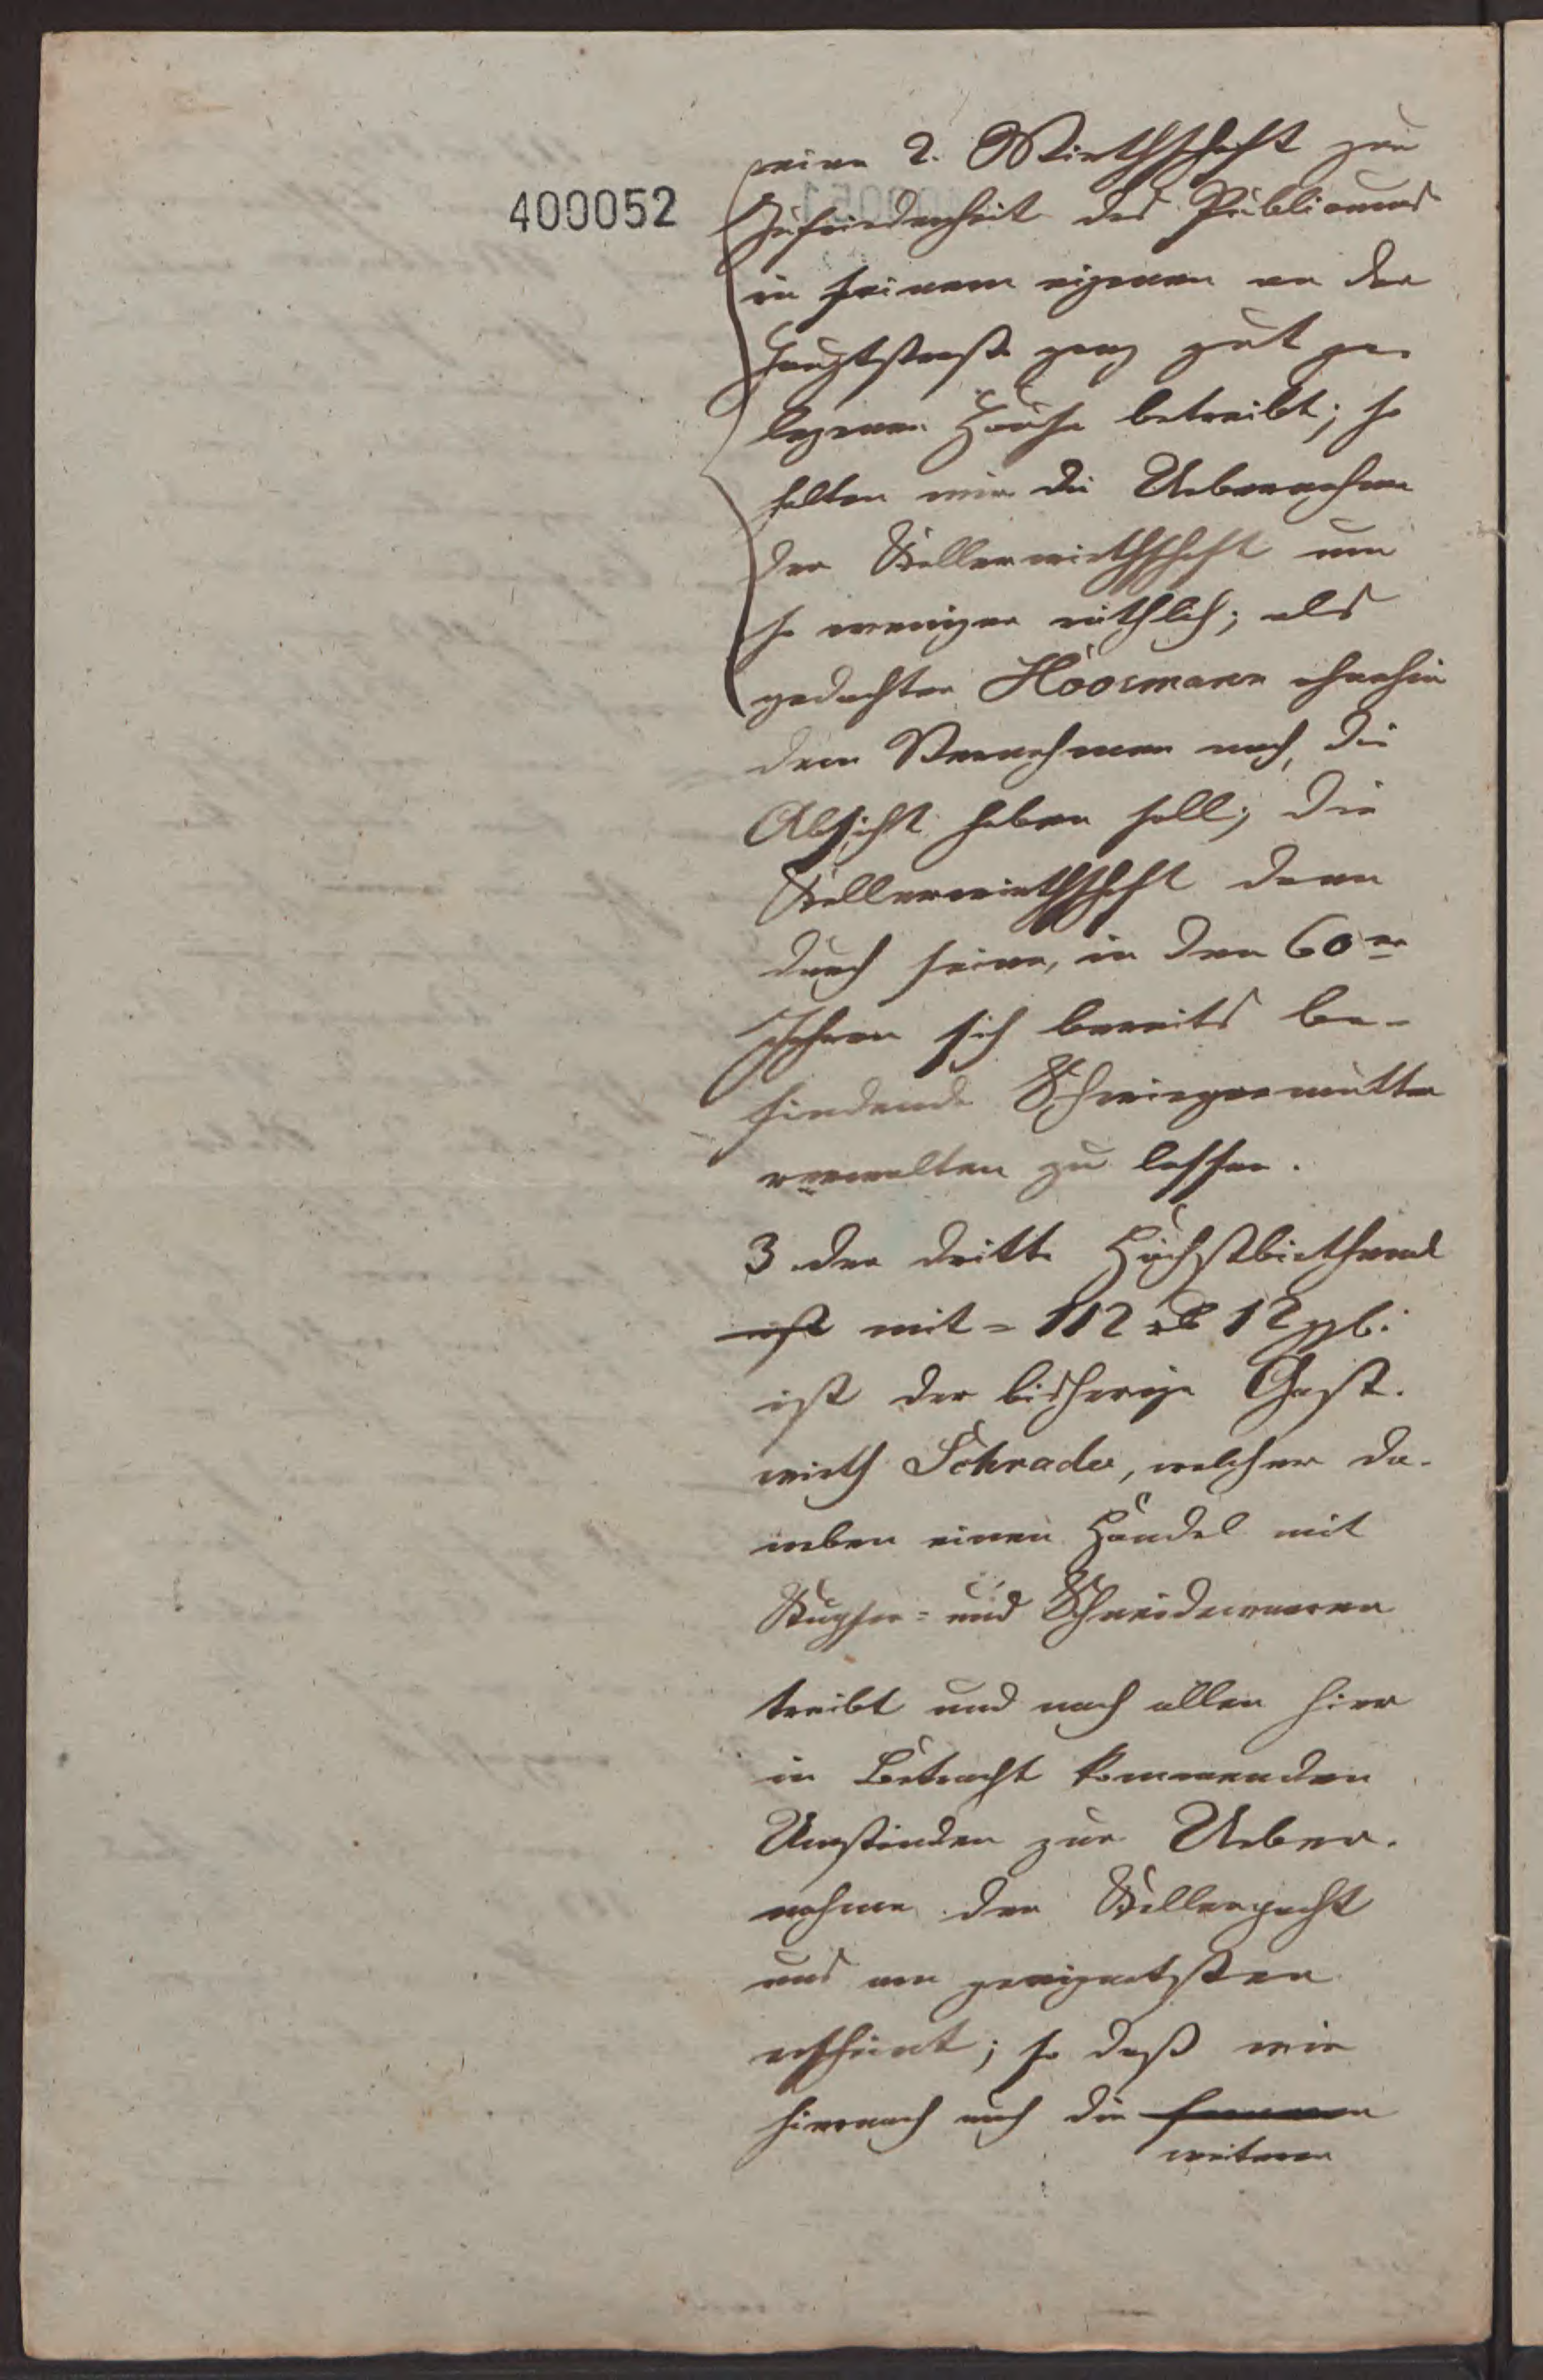 400052
seine 2. Wirthschaft zur
Zufriedenheit des Publicums
in seinem eigenen an der
Hauptstraße ganz gut ge-
legenen Hause betreibt; so
halten wir die Uebernahme
der Kellerwirthschaft um
so weniger räthlich; als
gedachter Hoosmann ohnehin
dem Vernehmen nach, die
Absicht haben soll; die
Kellerwirthschaft dann
durch seine, in den 60er
Jahren sich bereits be-
findende Schwiegermutter
verwalten zu lassen.
3 der dritte Höchstbiethend
mit = 112 rl 12 ggl:
ist der bisherige Gast-
wirth Schrader, welcher da-
neben einen Handel mit
Kupfer= und Schneidewaaren
treibt und nach allen hier
in Betracht kommenden
Umständen zur Ueber-
nahme der Kellerpacht
uns am geeignetsten
erscheint; so daß wir
hiernach auch die
weitere